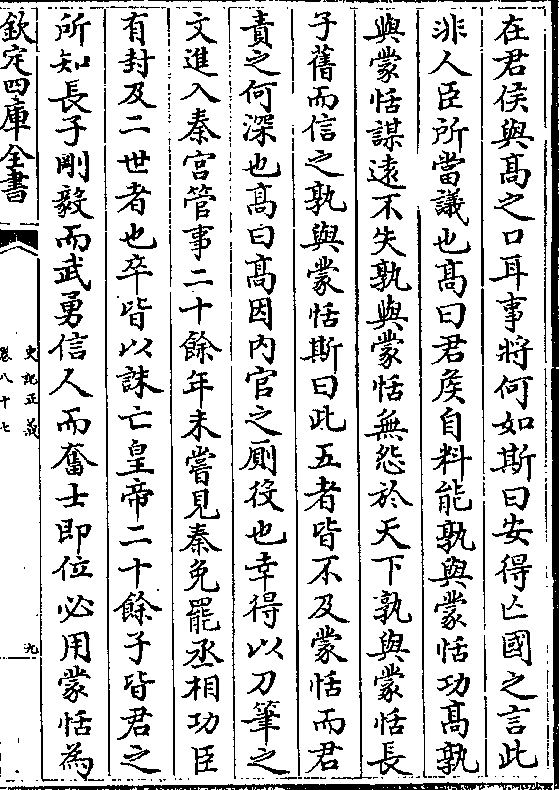 在君侯與髙之口耳事將何如斯曰安得亡國之言此
非人臣所當議也髙曰君侯自料能孰與蒙恬功髙孰
與蒙恬謀逺不失孰與蒙恬無怨於天下孰與蒙恬長
子舊而信之孰與蒙恬斯曰此五者皆不及蒙恬而君
責之何深也髙曰髙固内官之厠役也幸得以刀筆之
文進入秦宮管事二十餘年未嘗見秦免罷丞相功臣
有封及二世者也卒皆以誅亡皇帝二十餘子皆君之
所知長子剛毅而武勇信人而奮士即位必用蒙恬為
欽定四庫全書
史記正義
卷八十七
九